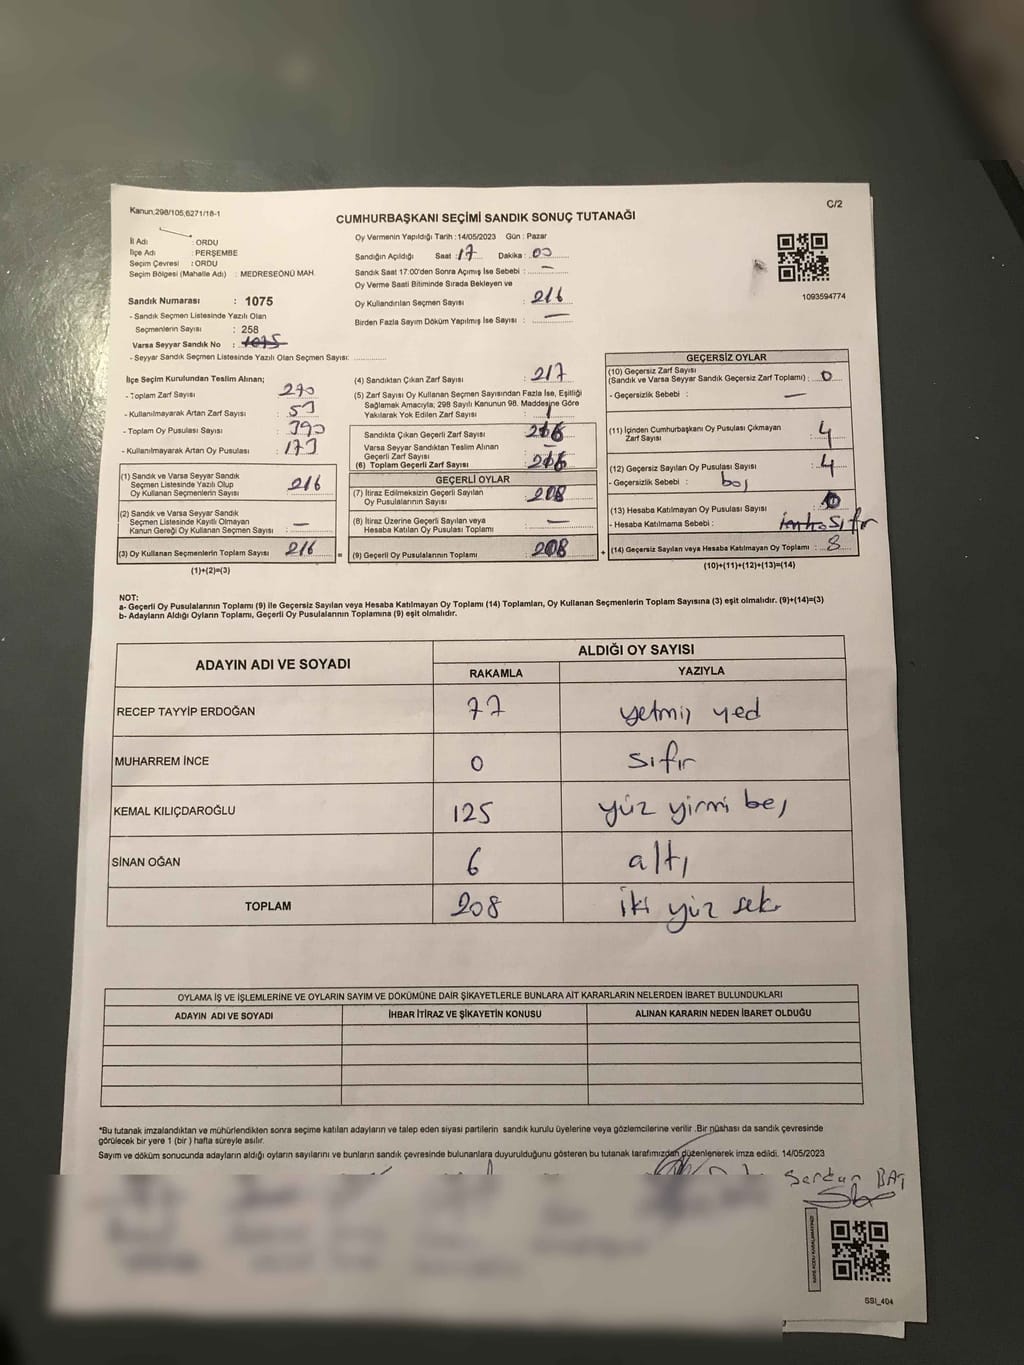 Kanun,298/105,6271/18-1
C/2
CUMHURBAŞKANI SEÇİMİ SANDIK SONUÇ TUTANAĞI
İl Adı : ORDU
İlçe Adı : PERŞEMBE
Seçim Çevresi : ORDU
Seçim Bölgesi (Mahalle Adı) : MEDRESEÖNÜ MAH.
Sandık Numarası : 1075
- Sandık Seçmen Listesinde Yazılı Olan
Seçmenlerin Sayısı : 258
Varsa Seyyar Sandık No : 1075
- Seyyar Sandık Seçmen Listesinde Yazılı Olan Seçmen Sayısı: ..............
Oy Vermenin Yapıldığı Tarih :14/05/2023 Gün : Pazar
Sandığın Açıldığı Saat : 17 Dakika : 00
Sandık Saat 17:00'den Sonra Açımış İse Sebebi : —
Oy Verme Saati Bitiminde Sırada Bekleyen ve
Oy Kullandırılan Seçmen Sayısı : 216
Birden Fazla Sayım Döküm Yapılmış İse Sayısı : —
1093594774
İlçe Seçim Kurulundan Teslim Alınan;
- Toplam Zarf Sayısı : 270
- Kullanılmayarak Artan Zarf Sayısı : 53
- Toplam Oy Pusulası Sayısı : 390
- Kullanılmayarak Artan Oy Pusulası : 173
(1) Sandık ve Varsa Seyyar Sandık
Seçmen Listesinde Yazılı Olup
Oy Kullanan Seçmenlerin Sayısı : 216
(2) Sandık ve Varsa Seyyar Sandık
Seçmen Listesinde Kayıtlı Olmayan
Kanun Gereği Oy Kullanan Seçmen Sayısı : —
(3) Oy Kullanan Seçmenlerin Toplam Sayısı : 216 =
(1)+(2)=(3)
(4) Sandıktan Çıkan Zarf Sayısı : 217
(5) Zarf Sayısı Oy Kullanan Seçmen Sayısından Fazla İse, Eşitliği
Sağlamak Amacıyla, 298 Sayılı Kanunun 98. Maddesine Göre
Yakılarak Yok Edilen Zarf Sayısı : 1
Sandıkta Çıkan Geçerli Zarf Sayısı : 216
Varsa Seyyar Sandıktan Teslim Alınan
Geçerli Zarf Sayısı : —
(6) Toplam Geçerli Zarf Sayısı : 216
GEÇERLİ OYLAR
(7) İtiraz Edilmeksizin Geçerli Sayılan
Oy Pusulalarının Sayısı : 208
(8) İtiraz Üzerine Geçerli Sayılan veya
Hesaba Katılan Oy Pusulası Toplamı : —
(9) Geçerli Oy Pusulalarının Toplamı : 208 +
GEÇERSİZ OYLAR
(10) Geçersiz Zarf Sayısı
(Sandık ve Varsa Seyyar Sandık Geçersiz Zarf Toplamı) : 0
- Geçersizlik Sebebi : —
(11) İçinden Cumhurbaşkanı Oy Pusulası Çıkmayan
Zarf Sayısı : 4
(12) Geçersiz Sayılan Oy Pusulası Sayısı : 4
- Geçersizlik Sebebi : boş
(13) Hesaba Katılmayan Oy Pusulası Sayısı : 0
- Hesaba Katılmama Sebebi : sıfır
(14) Geçersiz Sayılan veya Hesaba Katılmayan Oy Toplamı : 8
(10)+(11)+(12)+(13)=(14)
NOT:
a- Geçerli Oy Pusulalarının Toplamı (9) ile Geçersiz Sayılan veya Hesaba Katılmayan Oy Toplamı (14) Toplamları, Oy Kullanan Seçmenlerin Toplam Sayısına (3) eşit olmalıdır. (9)+(14)=(3)
b- Adayların Aldığı Oyların Toplamı, Geçerli Oy Pusulalarının Toplamına (9) eşit olmalıdır.
ADAYIN ADI VE SOYADI ALDIĞI OY SAYISI
RAKAMLA YAZIYLA
RECEP TAYYİP ERDOĞAN 77 yetmiş yed
MUHARREM İNCE 0 sıfır
KEMAL KILIÇDAROĞLU 125 yüz yirmi beş
SİNAN OĞAN 6 altı
TOPLAM 208 iki yüz sek
OYLAMA İŞ VE İŞLEMLERİNE VE OYLARIN SAYIM VE DÖKÜMÜNE DAİR ŞİKAYETLERLE BUNLARA AİT KARARLARIN NELERDEN İBARET BULUNDUKLARI
ADAYIN ADI VE SOYADI İHBAR İTİRAZ VE ŞİKAYETİN KONUSU ALINAN KARARIN NEDEN İBARET OLDUĞU
*Bu tutanak imzalandıktan ve mühürlendikten sonra seçime katılan adayların ve talep eden siyasi partilerin sandık kurulu üyelerine veya gözlemcilerine verilir .Bir nüshası da sandık çevresinde
görülecek bir yere 1 (bir ) hafta süreyle asılır.
Sayım ve döküm sonucunda adayların aldığı oyların sayılarını ve bunların sandık çevresinde bulunanlara duyurulduğunu gösteren bu tutanak tarafımızdan düzenlenerek imza edildi. 14/05/2023
BAŞ
SSI_404